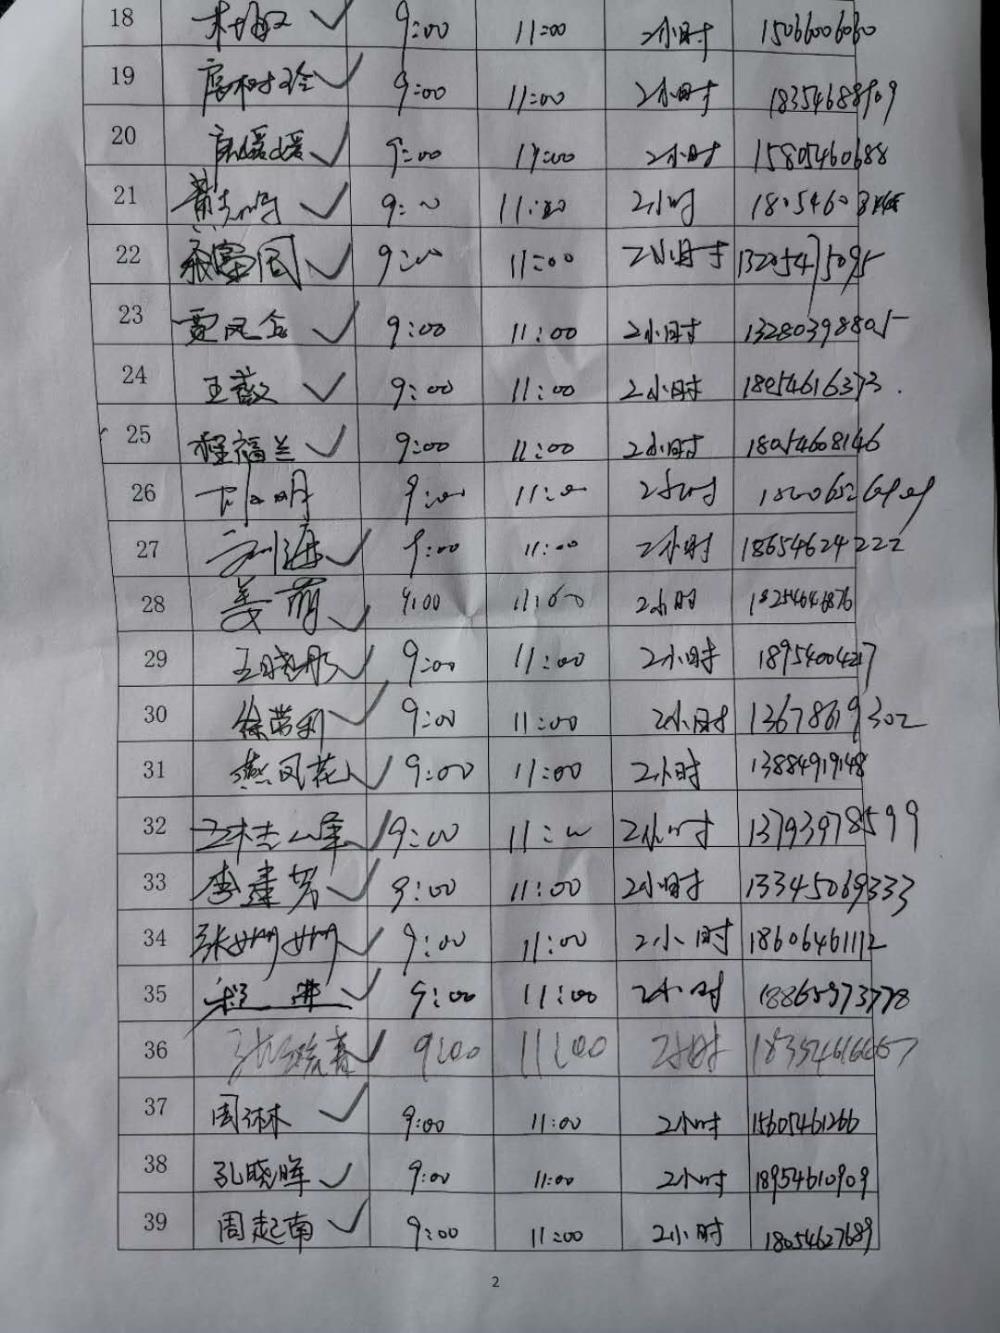 18 9:00 11:00 2小时 15066006060
19 9:00 11:00 2小时 18354688909
20 9:00 11:00 2小时 15805460688
21 9:00 11:00 2小时
22 9:00 11:00 2小时 13205475095
23 贾凤金 9:00 11:00 2小时 13280398805
24 王薇 9:00 11:00 2小时 18054616373
25 程福兰 9:00 11:00 2小时 18054608146
26 9:00 11:00 2小时
27 刘海 9:00 11:00 2小时 18654624222
28 姜萌 9:00 11:00 2小时 18254646876
29 王晓彤 9:00 11:00 2小时 18954004217
30 徐荣利 9:00 11:00 2小时 13678619302
31 燕凤花 9:00 11:00 2小时 13884919148
32 9:00 11:00 2小时 13793978599
33 李建芳 9:00 11:00 2小时 13345069333
34 张姗姗 9:00 11:00 2小时 18606461112
35 9:00 11:00 2小时 18865973778
36 9:00 11:00 2小时
37 周琳 9:00 11:00 2小时 15605461266
38 孔晓晖 9:00 11:00 2小时 18954610909
39 周起南 9:00 11:00 2小时 18054627689
2